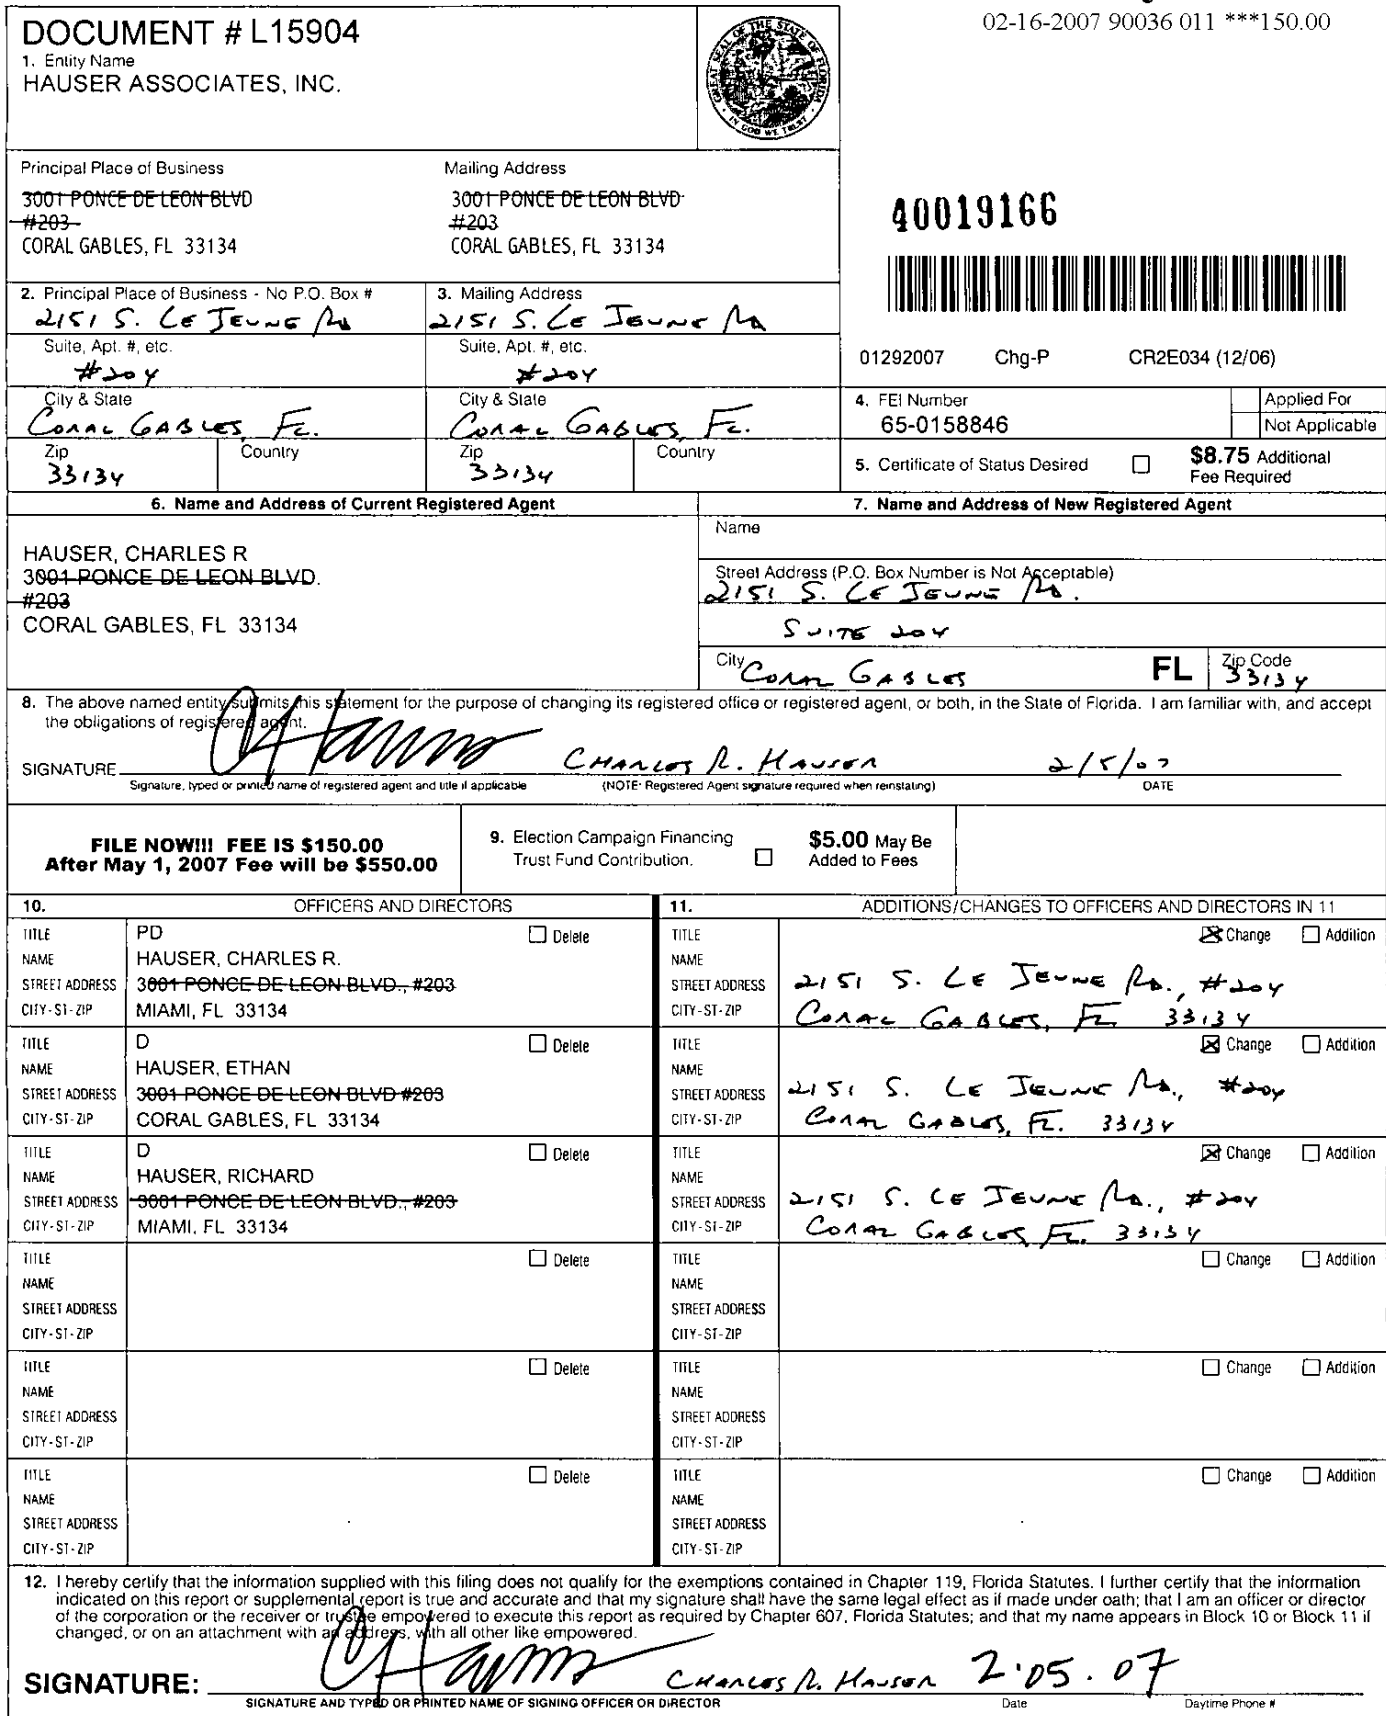 02-16-2007 90036 011 ***150.00
DOCUMENT # L15904
1. Entity Name
HAUSER ASSOCIATES, INC.
GREAT SEAL OF THE STATE OF FLORIDA
IN GOD WE TRUST
Principal Place of Business
3001 PONCE DE LEON BLVD
#203
CORAL GABLES, FL 33134
Mailing Address
3001 PONCE DE LEON BLVD
#203
CORAL GABLES, FL 33134
40019166
2. Principal Place of Business - No P.O. Box #
2151 S. LE JEUNE RD
Suite, Apt. #, etc.
#204
City & State
CORAL GABLES, FL.
Zip
33134
Country
3. Mailing Address
2151 S. LE JEUNE RD
Suite, Apt. #, etc.
#204
City & State
CORAL GABLES, FL.
Zip
33134
Country
01292007 Chg-P CR2E034 (12/06)
4. FEI Number
65-0158846
Applied For
Not Applicable
5. Certificate of Status Desired
$8.75 Additional
Fee Required
6. Name and Address of Current Registered Agent
HAUSER, CHARLES R
3001 PONCE DE LEON BLVD.
#203
CORAL GABLES, FL 33134
7. Name and Address of New Registered Agent
Name
Street Address (P.O. Box Number is Not Acceptable)
2151 S. LE JEUNE RD.
SUITE 204
City CORAL GABLES FL Zip Code 33134
8. The above named entity submits this statement for the purpose of changing its registered office or registered agent, or both, in the State of Florida. I am familiar with, and accept
the obligations of registered agent.
SIGNATURE CHARLES R. HAUSER 2/5/07
Signature, typed or printed name of registered agent and title if applicable (NOTE: Registered Agent signature required when reinstating) DATE
FILE NOW!!! FEE IS $150.00
After May 1, 2007 Fee will be $550.00
9. Election Campaign Financing
Trust Fund Contribution.
$5.00 May Be
Added to Fees
10. OFFICERS AND DIRECTORS
11. ADDITIONS/CHANGES TO OFFICERS AND DIRECTORS IN 11
TITLE PD Delete
NAME HAUSER, CHARLES R.
STREET ADDRESS 3001 PONCE DE LEON BLVD., #203
CITY-ST-ZIP MIAMI, FL 33134
TITLE Change Addition
NAME
STREET ADDRESS 2151 S. LE JEUNE RD., #204
CITY-ST-ZIP CORAL GABLES, FL 33134
TITLE D Delete
NAME HAUSER, ETHAN
STREET ADDRESS 3001 PONCE DE LEON BLVD #203
CITY-ST-ZIP CORAL GABLES, FL 33134
TITLE Change Addition
NAME
STREET ADDRESS 2151 S. LE JEUNE RD., #204
CITY-ST-ZIP CORAL GABLES, FL. 33134
TITLE D Delete
NAME HAUSER, RICHARD
STREET ADDRESS 3001 PONCE DE LEON BLVD., #203
CITY-ST-ZIP MIAMI, FL 33134
TITLE Change Addition
NAME
STREET ADDRESS 2151 S. LE JEUNE RD., #204
CITY-ST-ZIP CORAL GABLES, FL. 33134
TITLE Delete
NAME
STREET ADDRESS
CITY-ST-ZIP
TITLE Change Addition
NAME
STREET ADDRESS
CITY-ST-ZIP
TITLE Delete
NAME
STREET ADDRESS
CITY-ST-ZIP
TITLE Change Addition
NAME
STREET ADDRESS
CITY-ST-ZIP
TITLE Delete
NAME
STREET ADDRESS
CITY-ST-ZIP
TITLE Change Addition
NAME
STREET ADDRESS
CITY-ST-ZIP
12. I hereby certify that the information supplied with this filing does not qualify for the exemptions contained in Chapter 119, Florida Statutes. I further certify that the information
indicated on this report or supplemental report is true and accurate and that my signature shall have the same legal effect as if made under oath; that I am an officer or director
of the corporation or the receiver or trustee empowered to execute this report as required by Chapter 607, Florida Statutes; and that my name appears in Block 10 or Block 11 if
changed, or on an attachment with an address, with all other like empowered.
SIGNATURE: CHARLES R. HAUSER 2.05.07
SIGNATURE AND TYPED OR PRINTED NAME OF SIGNING OFFICER OR DIRECTOR Date Daytime Phone #